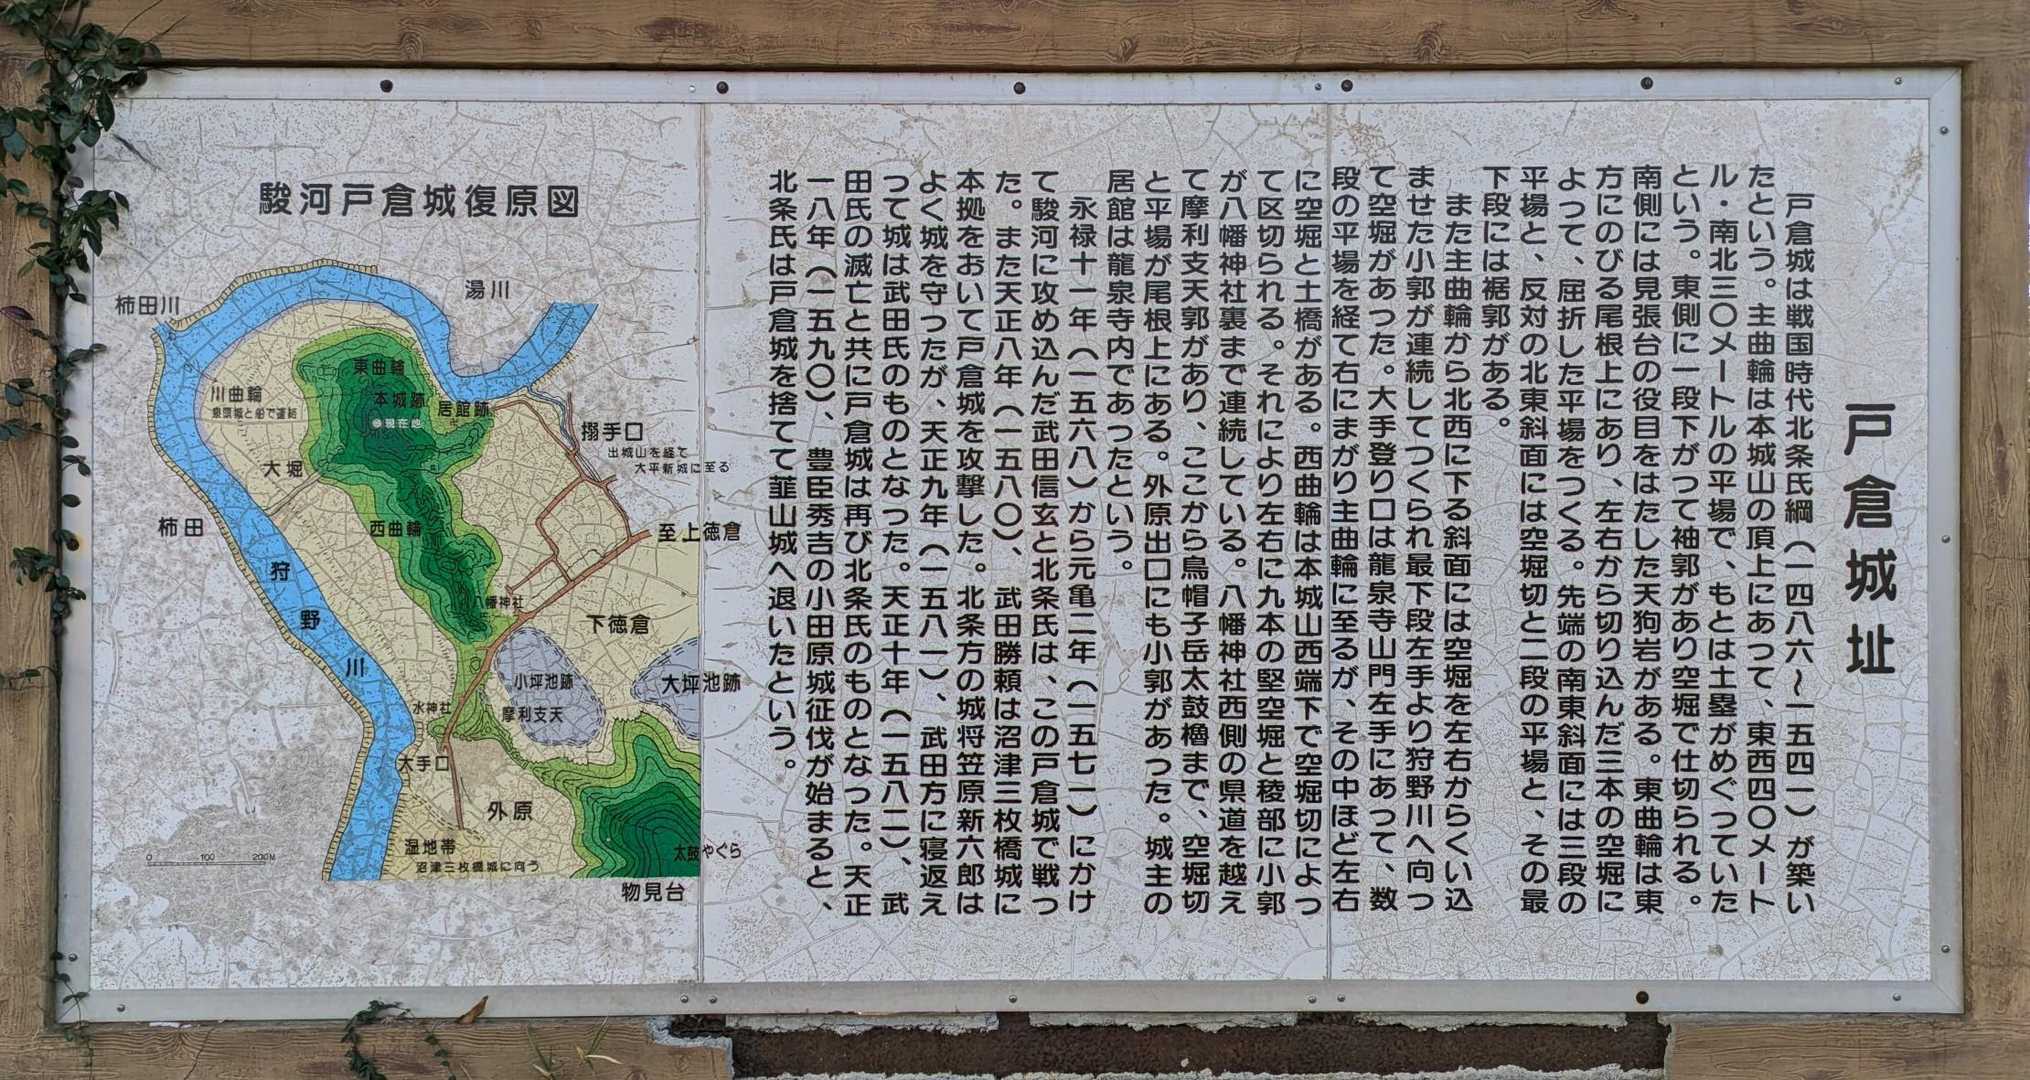 戸倉城址
戸倉城は戦国時代北条氏綱（一四八六〜一五四一）が築い
たという。主曲輪は本城山の頂上にあって、東西四〇メート
ル・南北三〇メートルの平場で、もとは土塁がめぐっていた
という。東側に一段下がって袖郭があり空堀で仕切られる。
南側には見張台の役目をはたした天狗岩がある。東曲輪は東
方にのびる尾根上にあり、左右から切り込んだ三本の空堀に
よって、屈折した平場をつくる。先端の南東斜面には三段の
平場と、反対の北東斜面には空堀切と二段の平場と、その最
下段には裾郭がある。
また主曲輪から北西に下る斜面には空堀を左右からくい込
ませた小郭が連続してつくられ最下段左手より狩野川へ向っ
て空堀があった。大手登り口は龍泉寺山門左手にあって、数
段の平場を経て右にまがり主曲輪に至るが、その中ほど左右
に空堀と土橋がある。西曲輪は本城山西端下で空堀切によっ
て区切られる。それにより左右に九本の竪空堀と稜部に小郭
が八幡神社裏まで連続している。八幡神社西側の県道を越え
て摩利支天郭があり、ここから烏帽子岳太鼓櫓まで、空堀切
と平場が尾根上にある。外原出口にも小郭があった。城主の
居館は龍泉寺内であったという。
永禄十一年（一五六八）から元亀二年（一五七一）にかけ
て駿河に攻め込んだ武田信玄と北条氏は、この戸倉城で戦っ
た。また天正八年（一五八〇）、武田勝頼は沼津三枚橋城に
本拠をおいて戸倉城を攻撃した。北条方の城将笠原新六郎は
よく城を守ったが、天正九年（一五八一）、武田方に寝返え
って城は武田氏のものとなった。天正十年（一五八二）、武
田氏の滅亡と共に戸倉城は再び北条氏のものとなった。天正
一八年（一五九〇）、豊臣秀吉の小田原城征伐が始まると、
北条氏は戸倉城を捨てて韮山城へ退いたという。
駿河戸倉城復原図
湯川
柿田川
東曲輪
川曲輪
泉頭城と船で連絡
本城跡
居館跡
現在地
搦手口
出城山を経て
大平新城に至る
大堀
柿田
西曲輪
至上徳倉
狩野川
八幡神社
下徳倉
小坪池跡
大坪池跡
水神社
摩利支天
大手口
外原
湿地帯
沼津三枚橋城に向う
太鼓やぐら
物見台
0 100 200M